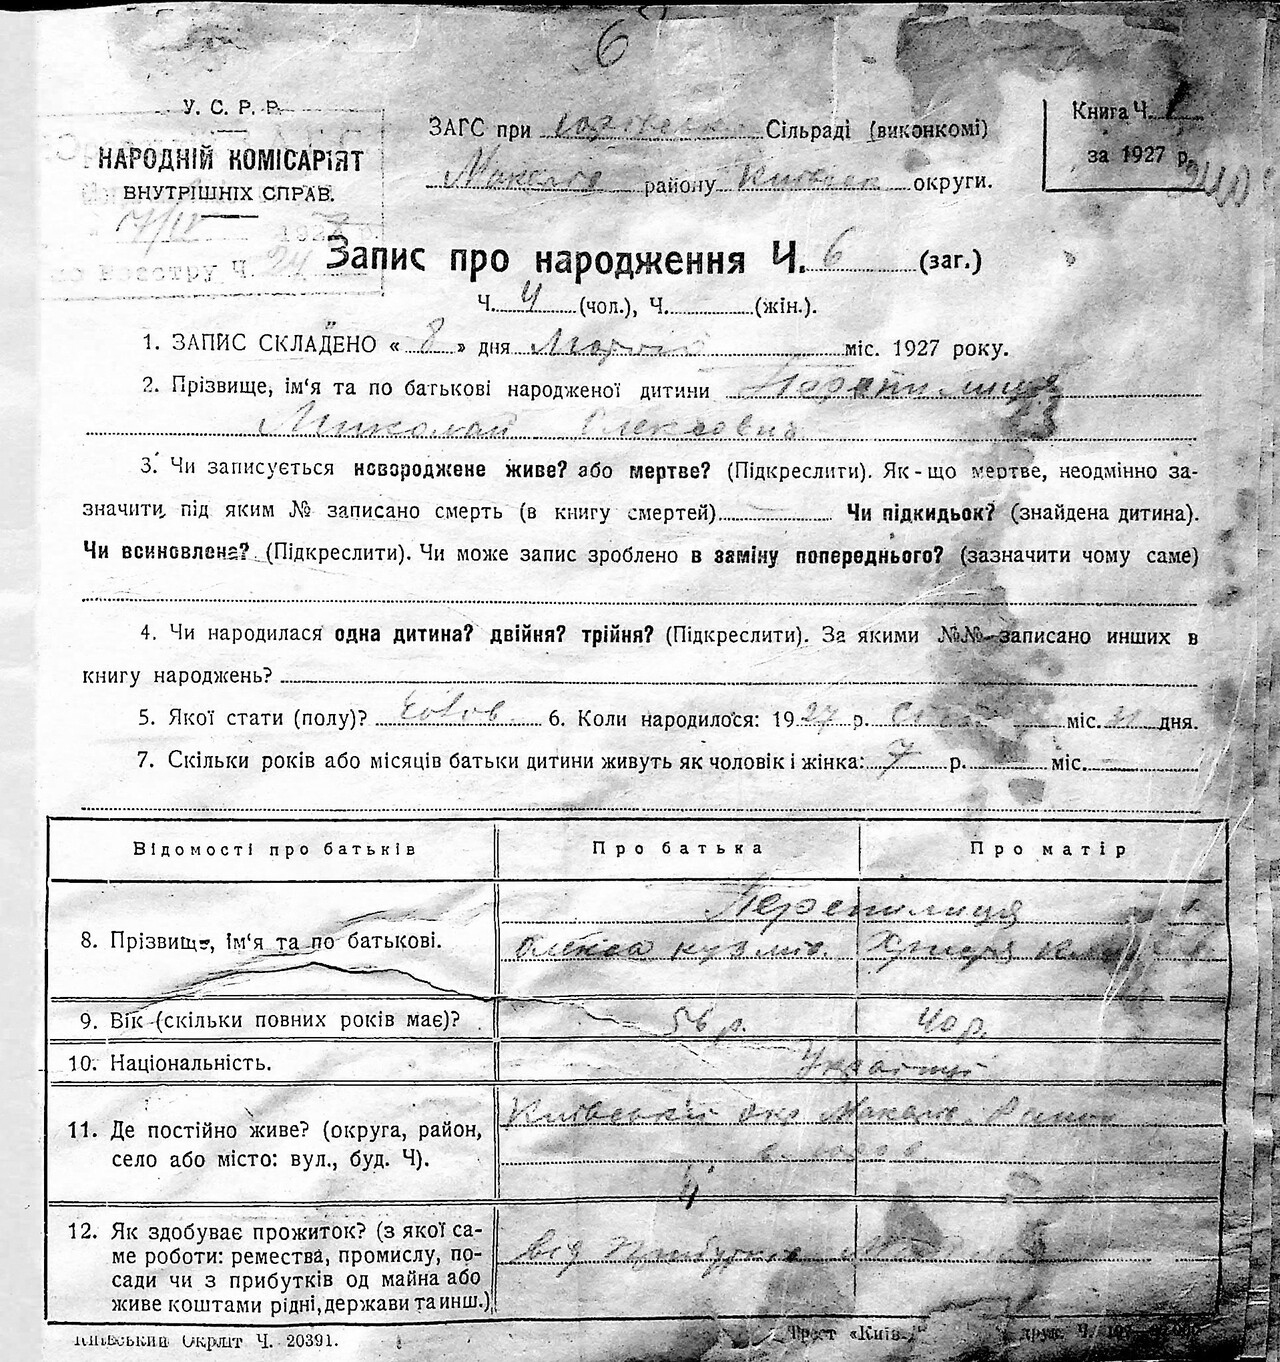 6
У. С. Р. Р.
НАРОДНІЙ КОМІСАРІЯТ
ВНУТРІШНІХ СПРАВ.
ЗАГС при Сільраді (виконкомі)
Макарів району Київськ округи.
Книга Ч. 1
за 1927 р.
17/IV 192
по Реєстру Ч. 24
Запис про народження Ч. 6 (заг.)
Ч. 4 (чол.), Ч. (жін.).
1. ЗАПИС СКЛАДЕНО « 8 » дня Марта міс. 1927 року.
2. Прізвище, ім‘я та по батькові народженої дитини Перепилиця
Миколай Олексович
3. Чи записується новороджене живе? або мертве? (Підкреслити). Як-що мертве, неодмінно за-
значити, під яким № записано смерть (в книгу смертей) Чи підкидьок? (знайдена дитина).
Чи всиновлена? (Підкреслити). Чи може запис зроблено в заміну попереднього? (зазначити чому саме)
4. Чи народилася одна дитина? двійня? трійня? (Підкреслити). За якими №№ записано инших в
книгу народжень?
5. Якої стати (полу)? Чолов. 6. Коли народилося: 1927 р. міс. дня.
7. Скільки років або місяців батьки дитини живуть як чоловік і жінка: 7 р. міс.
Відомості про батьків Про батька Про матір
8. Прізвище, ім‘я та по батькові. Перепилиця
Олекса Кузмів.
9. Вік (скільки повних років має)? 56 р. 40 р.
10. Національність. Українці
11. Де постійно живе? (округа, район,
село або місто: вул., буд. Ч).
Київській окр Макарів.
12. Як здобуває прожиток? (з якої са-
ме роботи: ремества, промислу, по-
сади чи з прибутків од майна або
живе коштами рідні, держави та инш.)
від
Київський Окрліт Ч. 20391.
Трест «Київ-